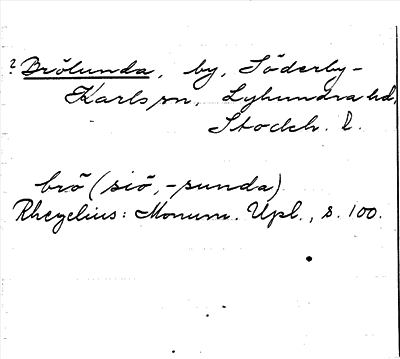 ? Brölunda, by, Söderby-
Karls sn, Lyhundra hd,
Stockh. l.
brö (siö, -sunda)
Rhezelius: Monum. Upl., s. 100.